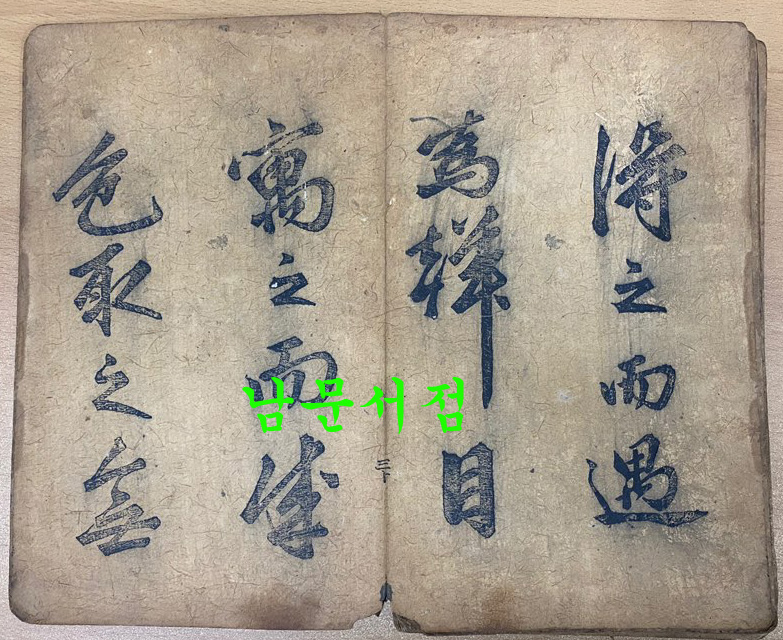 得之而遇
為聲目
寓之而成
色取之無
남문서점